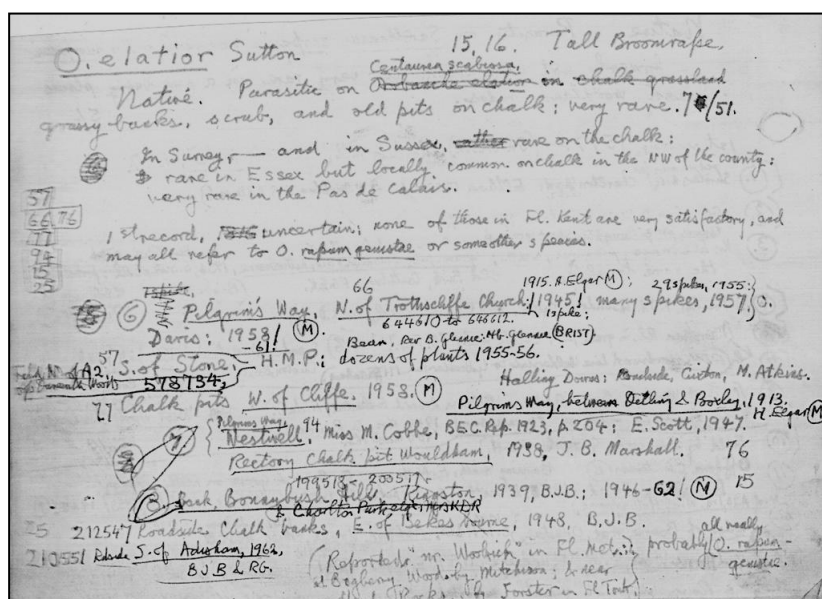 O. elatior Sutton 15, 16. Tall Broomrape.
Centaurea scabiosa,
Native. Parasitic on Orobanche elatior in chalk grassland
grassy banks, scrub, and old pits on chalk; very rare. 7/51.
In Surrey — and in Sussex, rather rare on the chalk;
rare in Essex but locally common on chalk in the NW of the county;
very rare in the Pas de Calais.
57
66 76
77
94
15
25
1st record, uncertain; none of those in Fl. Kent are very satisfactory, and
may all refer to O. rapum genistae or some other species.
66 1915. H. Elgar (M); 29 spikes, 1955;
(6) Pilgrim's Way, N. of Trottiscliffe Church; 1945! many spikes, 1957, O.
644610 to 646612. 1 spike;
Davis; 1958! (M)
-61!
Rev B. (BRIST)
57 S. of Stone, H.M.P.; dozens of plants 1955-56.
N. of A2,
578734,
Halling Downs; M. Atkins.
77 Chalk pits W. of Cliffe. 1958. (M)
Pilgrims Way, between Detling & Boxley, 1913.
H. Elgar (M)
Pilgrims Way
(7) Westwell, 94 Miss M. Cobbe, B.E.C. Rep. 1923, p. 204; E. Scott, 1947.
Rectory Chalk pit Wouldham, 1938, J. B. Marshall. 76
(8) Bonnybush Hill, Kingston 1939, B.J.B.; 1946-62! (M) 15
& Charlton Park
25 212547 Roadside Chalk banks, E. of Bekesbourne, 1948, B.J.B.
213551 S. of Adisham, 1962,
BJB & RG.
(Reported "nr. Woolwich" in Fl. Met.; probably O. rapum-
all really
genistae.
by Mitchison; & near
Forster in Fl Tonb.